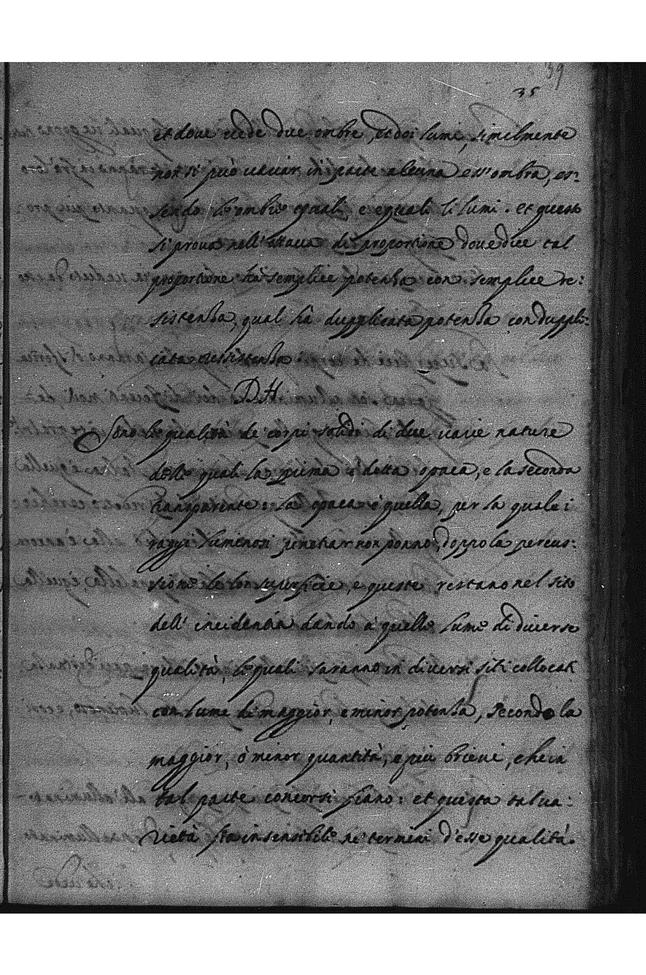 39
35
et doue uede due ombre, et doi lumi similmente
non si può uariar in parte alcuna ess' ombra, es-
sendo le ombre equali, e equali li lumi. et questo
si proua nell' ottaua di proportione doue dice tal
proportione ha semplice potensa con semplice re:
sistensa, qual ha dupplicata potensa con duppli:
cata resistensa
D. H.
Sono le qualità de' corpi solidi di due uarie nature
delle quali la prima è detta opaca, e la seconda
transparente: la opaca è quella, per la quale i
raggi luminosi penetrar non ponno, doppo la percus:
sione le lor superficie, e queste restano nel sito
dell' incidentia dando à quelle lume di diuerse
qualità, le quali saranno in diuersi siti collocati
con lume di maggior, e minor potensa, secondo la
maggior, ò minor quantità, e più breui, che in
tal parte concorsi siano: et questa tal ua:
rietà sta insensibile ne termini d'esse qualità.